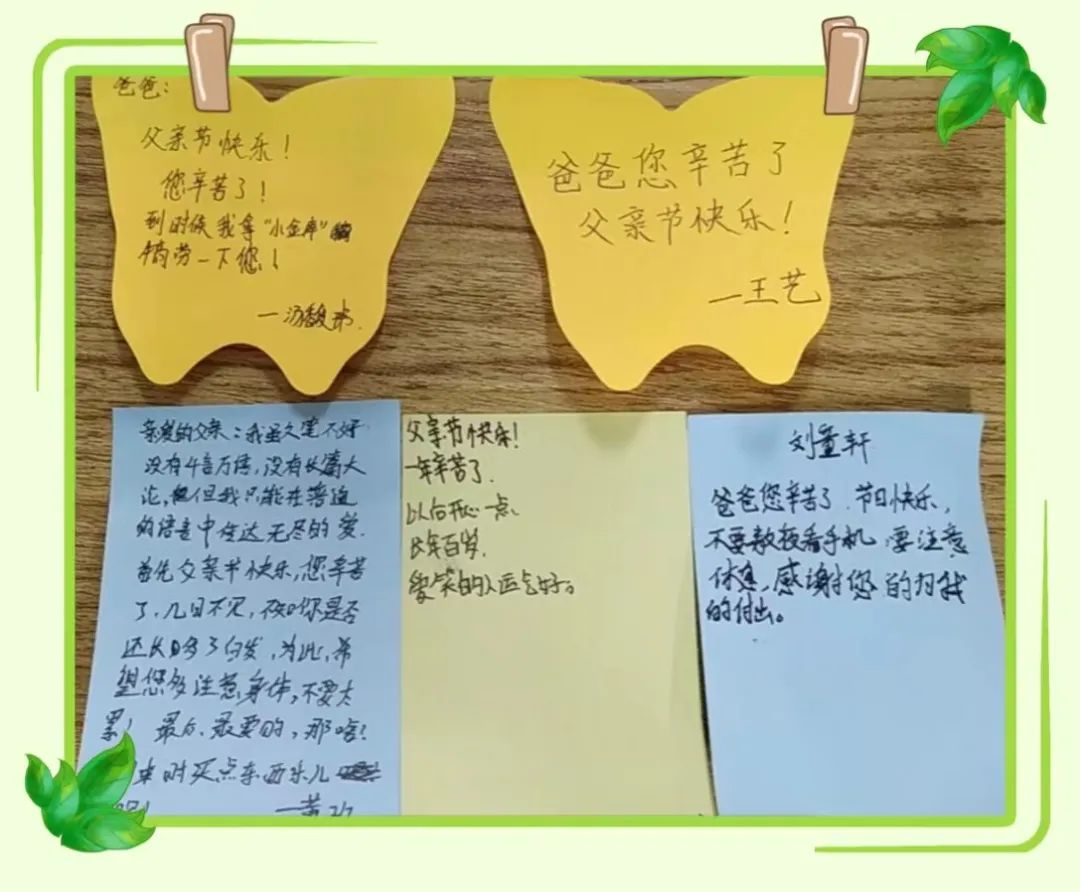 爸爸：
父亲节快乐！
您辛苦了！
到时候我拿“小金库”
犒劳一下您！
爸爸您辛苦了
父亲节快乐！
—王艺
亲爱的父亲：我虽文笔不好
没有千言万语，没有长篇大
论，但我只能在落笔
的语言中传达无尽的爱.
首先父亲节快乐，您辛苦
了，几日不见，你是否
还长多了白发，为此，希
望您多注意身体，不要太
累！最后、最要的，那啥！
来时买点东西
父亲节快乐！
一年辛苦了.
以后开心一点、
长年百岁.
爱笑的人运气好。
刘童轩
爸爸您辛苦了.节日快乐，
不要熬夜看手机 要注意
休息，感谢您的为我
的付出。